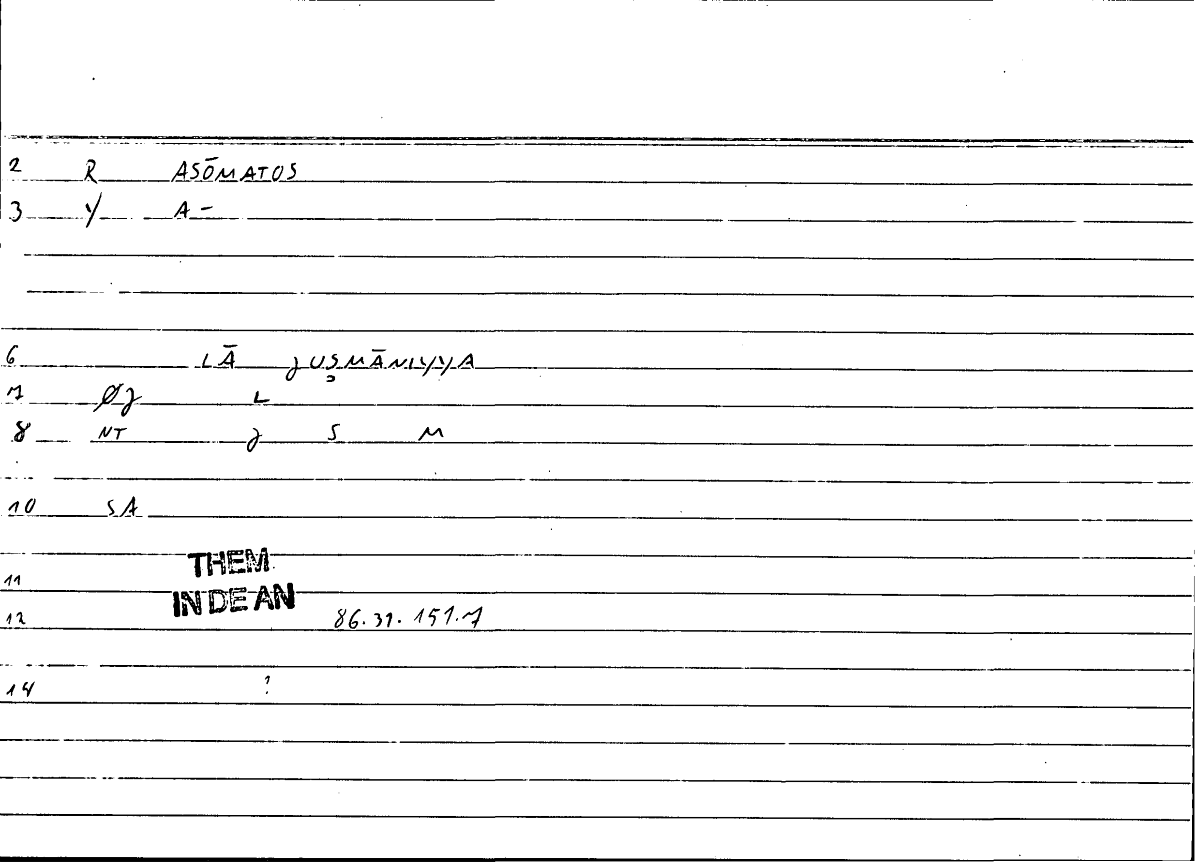 2 R ASŌMATOS
3 Y A-
6 LĀ ǧUṢMĀNIYYA
7 Øǧ L
8 NT ǧ S M
10 SA
11 THEM.
IN DE AN
12 86.31.151.7
14 ?